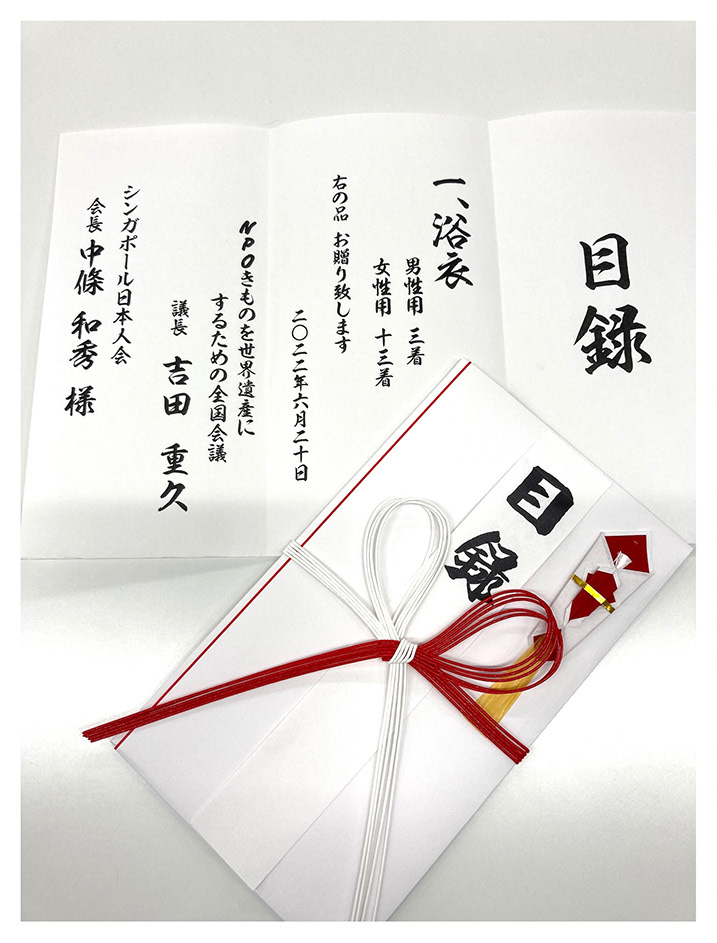 目録
一、浴衣
男性用 三着
女性用 十三着
右の品 お贈り致します
二〇二二年六月二十日
NPOきものを世界遺産に
するための全国会議
議長 吉田 重久
シンガポール日本人会
会長 中條 和秀 様
目録